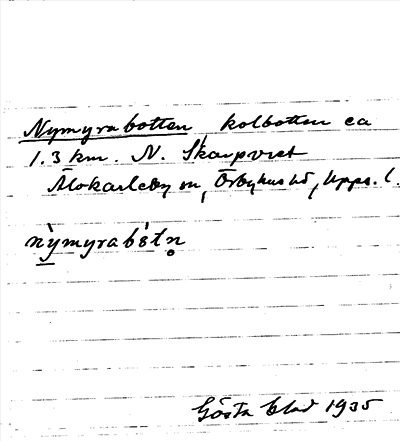 Nymyrabotten, kolbotten ca
1.3 km. N. Skarpret
Älvkarleby sn, Örbyhus hd, Upps. l.
nỳmyrabɔ́tn̥
Gösta Blad 1935